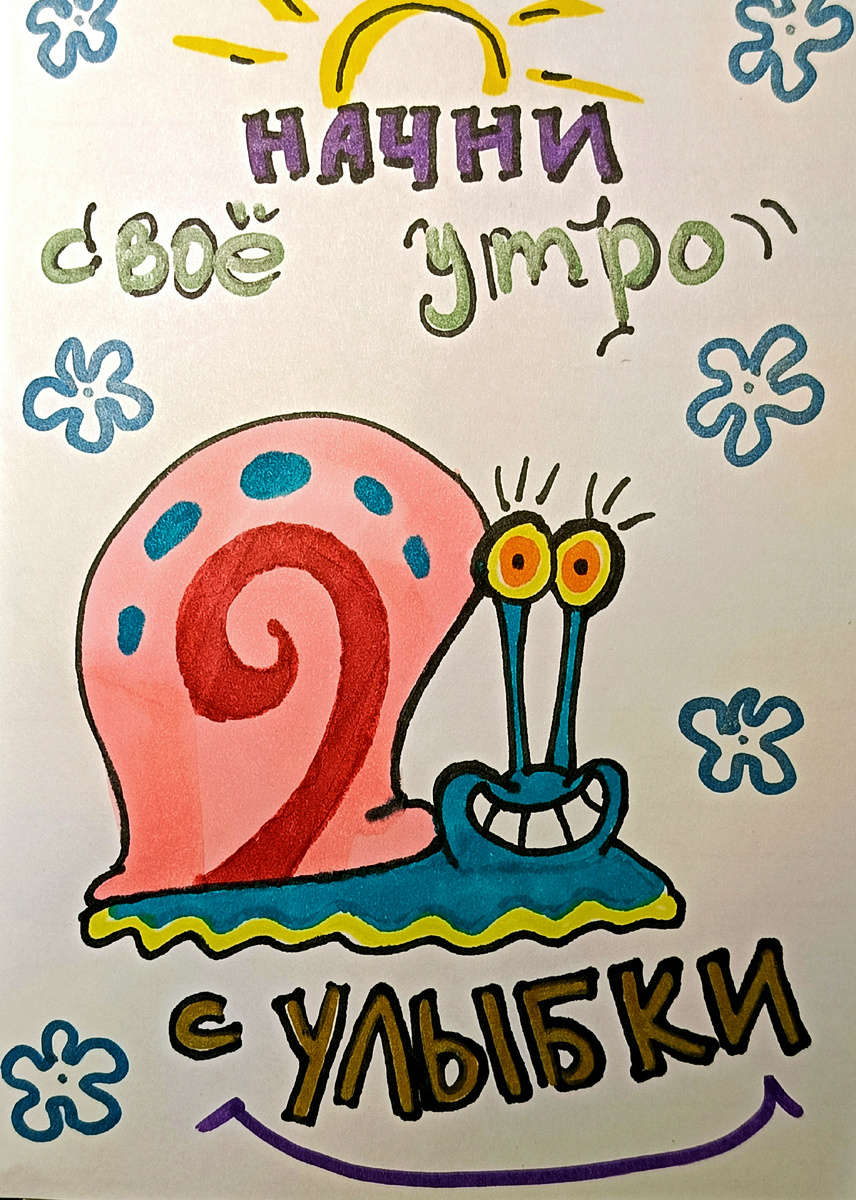 НАЧНИ
своё утро
С УЛЫБКИ